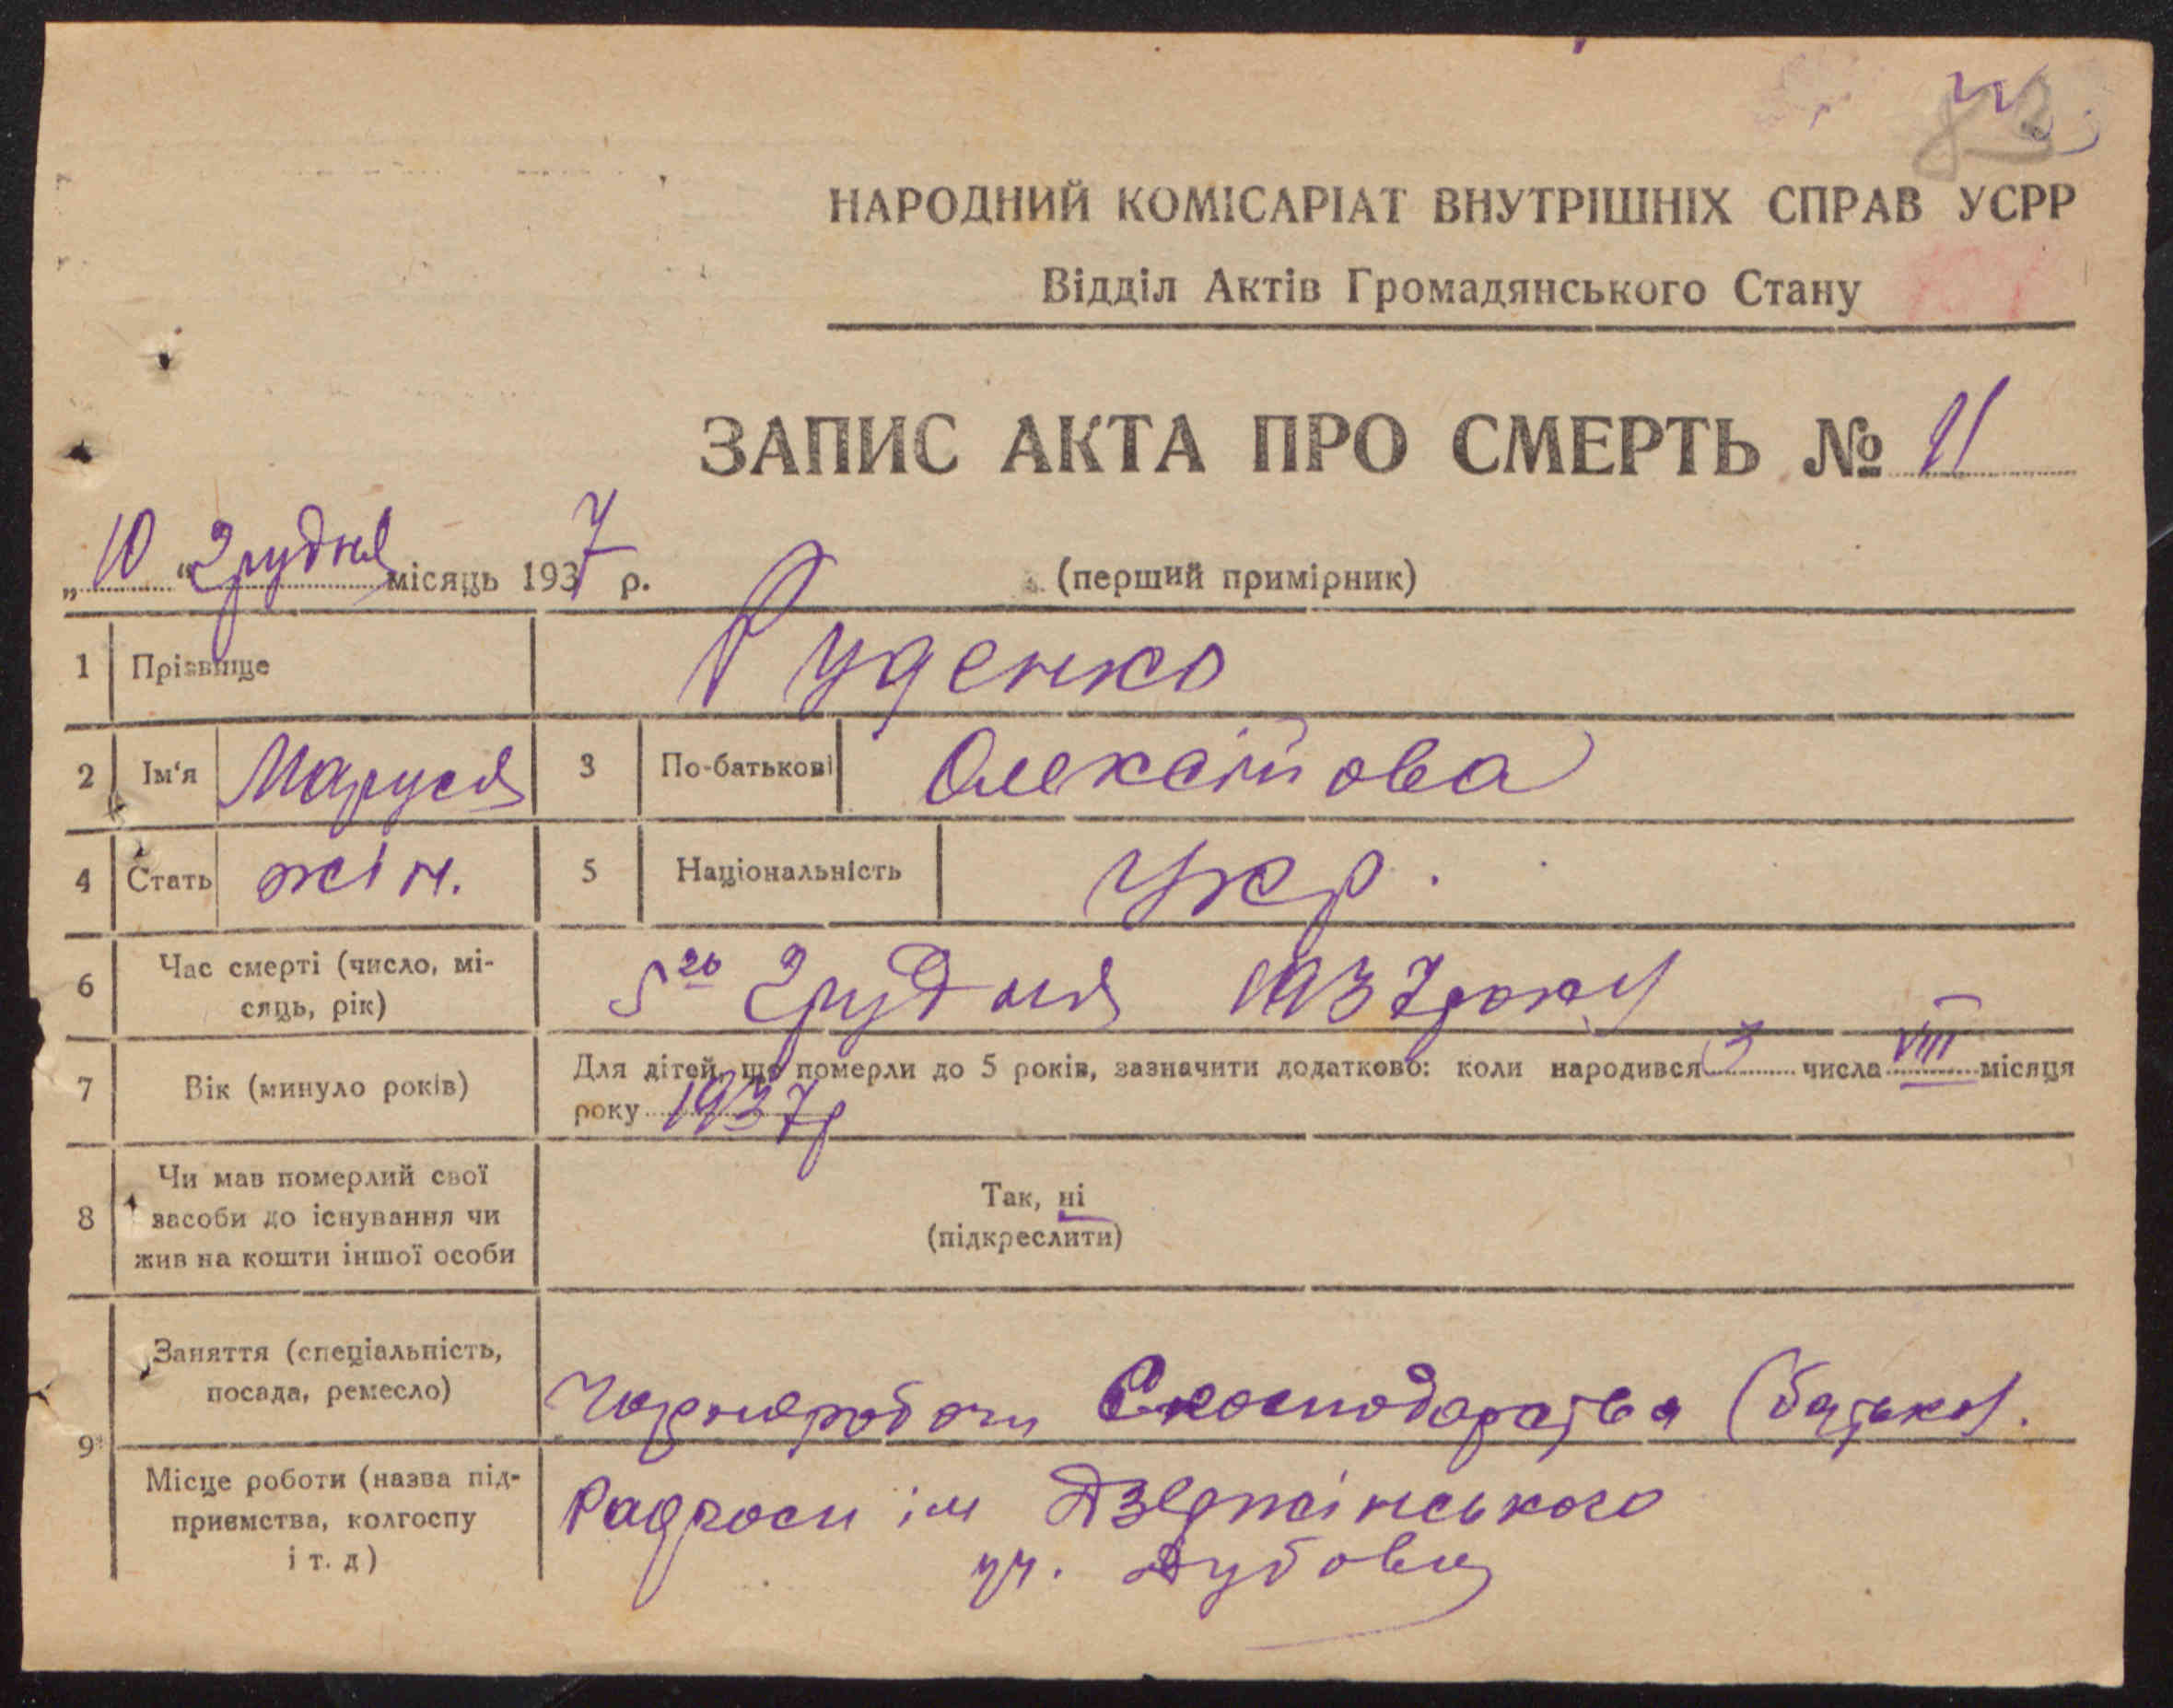 НАРОДНИЙ КОМІСАРІАТ ВНУТРІШНІХ СПРАВ УСРР
Відділ Актів Громадянського Стану
ЗАПИС АКТА ПРО СМЕРТЬ №
„10“ Грудня місяць 1937 р.
(перший примірник)
1 Прізвище Руденко
2 Ім‘я Маруся 3 По-батькові Олексійова
4 Стать жін. 5 Національність Укр.
6 Час смерті (число, мі-
сяць, рік) 5го Грудня 1937 року
7 Вік (минуло років) Для дітей, що померли до 5 років, зазначити додатково: коли народився числа VIII місяця
року 1937р
8 Чи мав померлий свої
засоби до існування чи
жив на кошти іншої особи
Так, ні
(підкреслити)
9 Заняття (спеціальність,
посада, ремесло) (батько).
Місце роботи (назва під-
приємства, колгоспу
і т. д) Радгосп ім Дзержінського
уч.